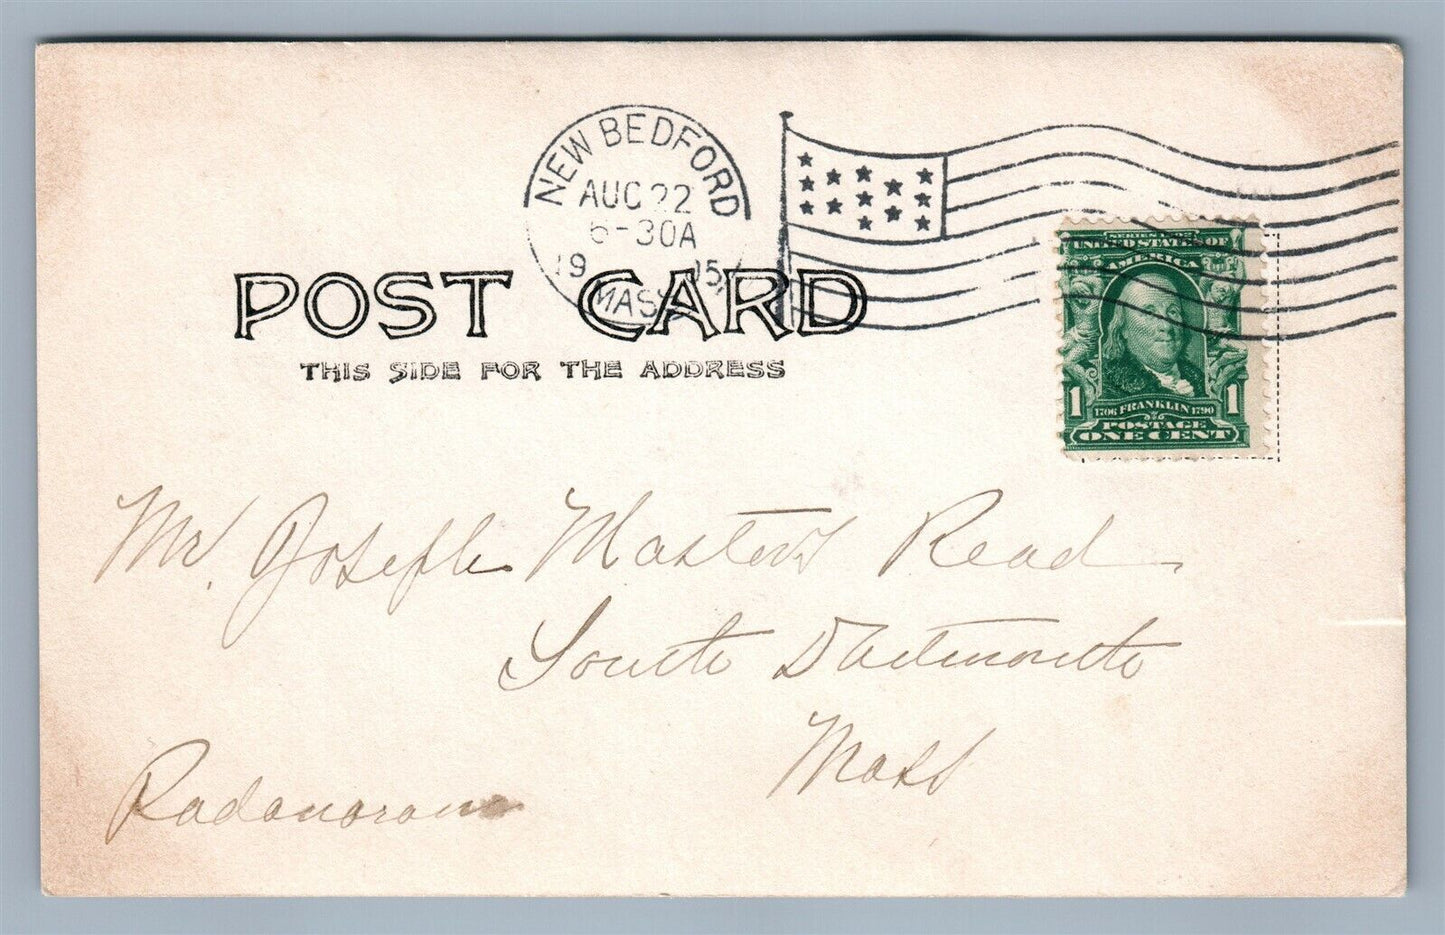 NEW BEDFORD
AUG 22
6-30A
1905
MASS.
POST CARD
THIS SIDE FOR THE ADDRESS
SERIES 1902
UNITED STATES OF
AMERICA
1 1706 FRANKLIN 1790 1
POSTAGE
ONE CENT
Mr. Joseph Masters Read
South Dartmouth
Mass